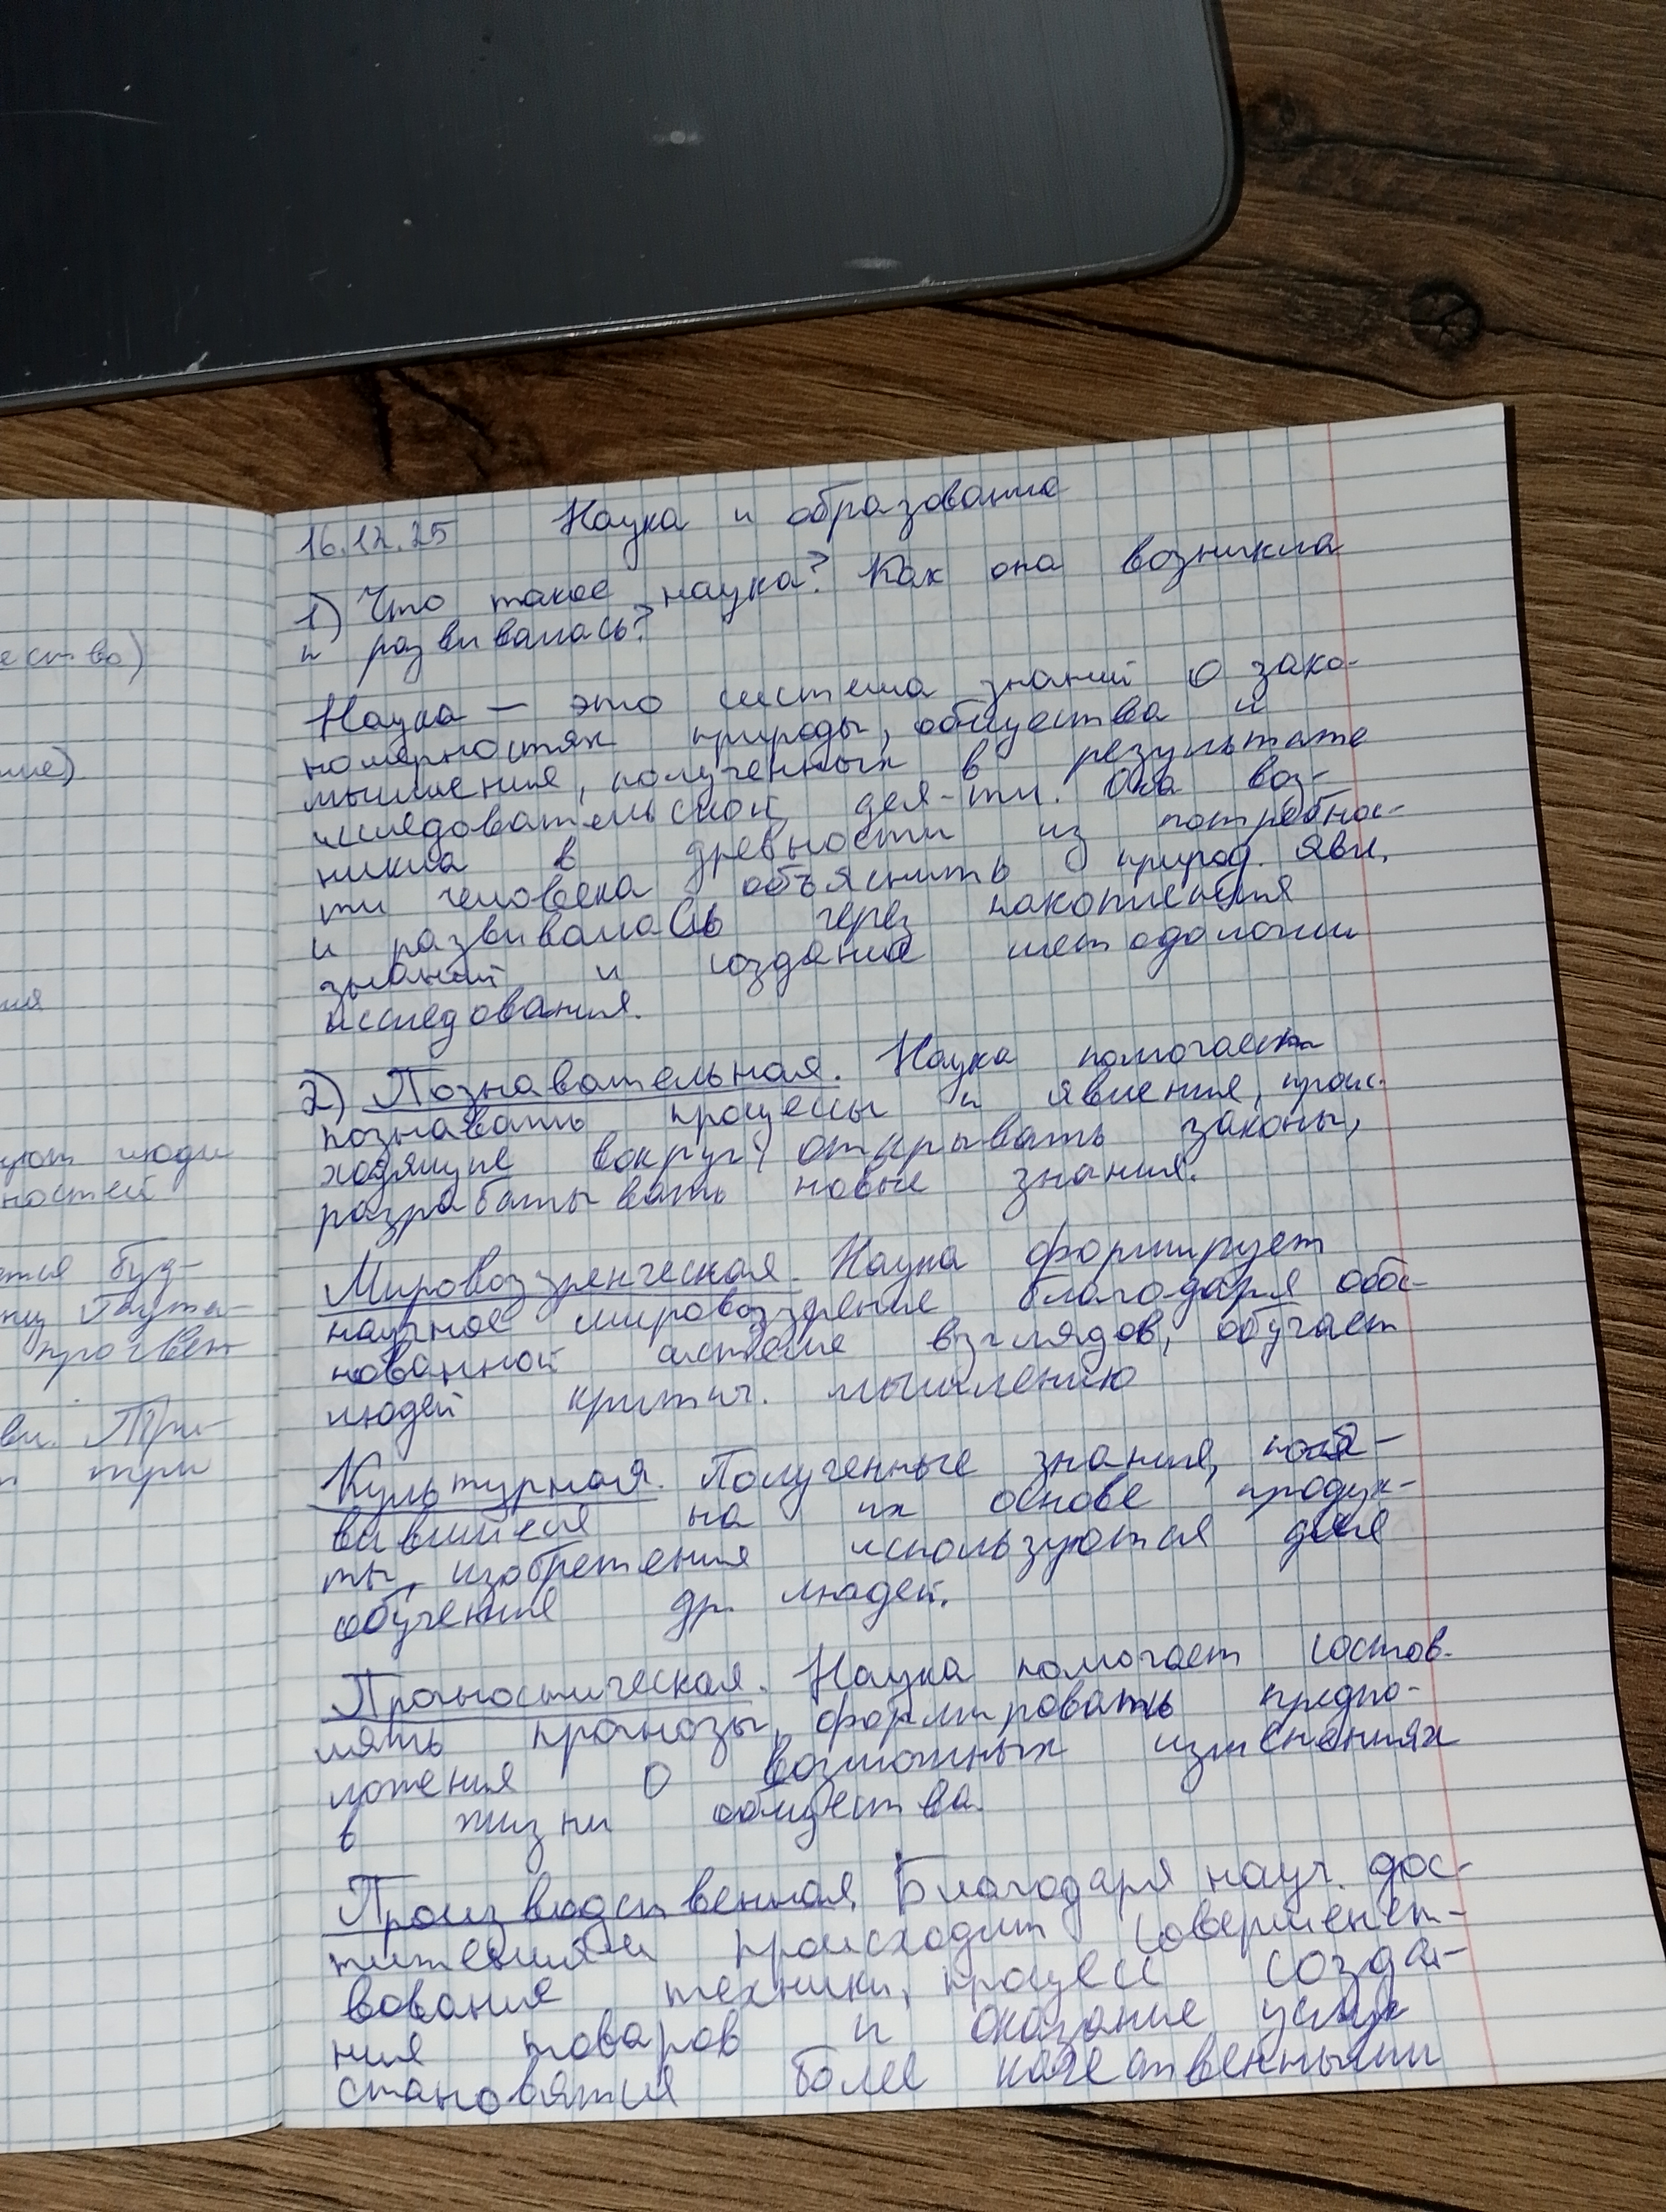 ество)
ние)
ния
уют люди
ностей
ется буд-
просвет
вл. При-
три
16.12.25 Наука и образование
1) Что такое наука? Как она возникла
и развивалась?
Наука — это система знаний о зако-
номерностях природы, общества и
мышления, полученных в результате
исследовательской дея-ти. Она воз-
никла в древности из потребнос-
ти человека объяснить природ. явл.
и развивалась через накопления
знаний и создание методологии
исследования.
2) Познавательная. Наука помогает
познавать процессы и явления, проис-
ходящие вокруг, открывать законы,
разрабатывать новые знания.
Мировоззренческая. Наука формирует
научное мировоззрение благодаря обос-
нованной системе взглядов, обучает
людей критич. мышлению
Культурная. Полученные знания, появ-
ившиеся на их основе продук-
ты, изобретения используются для
обучение др. людей.
Прогностическая. Наука помогает состав-
лять прогнозы, формировать предпо-
ложения о возможных изменениях
в жизни общества.
Производственная. Благодаря науч. дос-
тижениям происходит совершенст-
вование техники, процесс созда-
ния товаров и оказание услуг
становятся более качественными